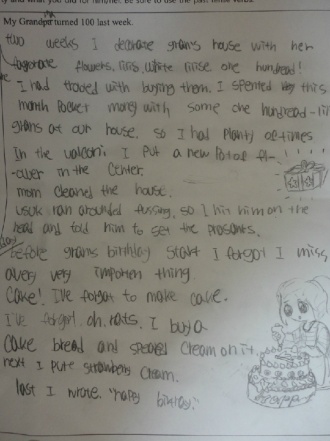 ly and what you did for him/her. Be sure to use the past tense verbs.
My Grandma turned 100 last week.
two weeks I decorate grams house with her
flowers, lilis, white one hundread!
I had troued with buying them. I spented this
month Pocket money with some one hundread-lili
grams at our house. so I had planty of times
In the I put a new pot of fl-!!!!!
-ower in the center.
mom cleaned the house.
ran arounded fussing, so I his him on the
head and told him to set the prosants.
before grams birthday start I forgot I miss
a very very important thing
Cake! I've forgot to make cake.
I've forgot. oh, rats. I buy a
Cake bread and spread cream on it.
next I pute strawberry cream.
last I wrote. "happy birthday."